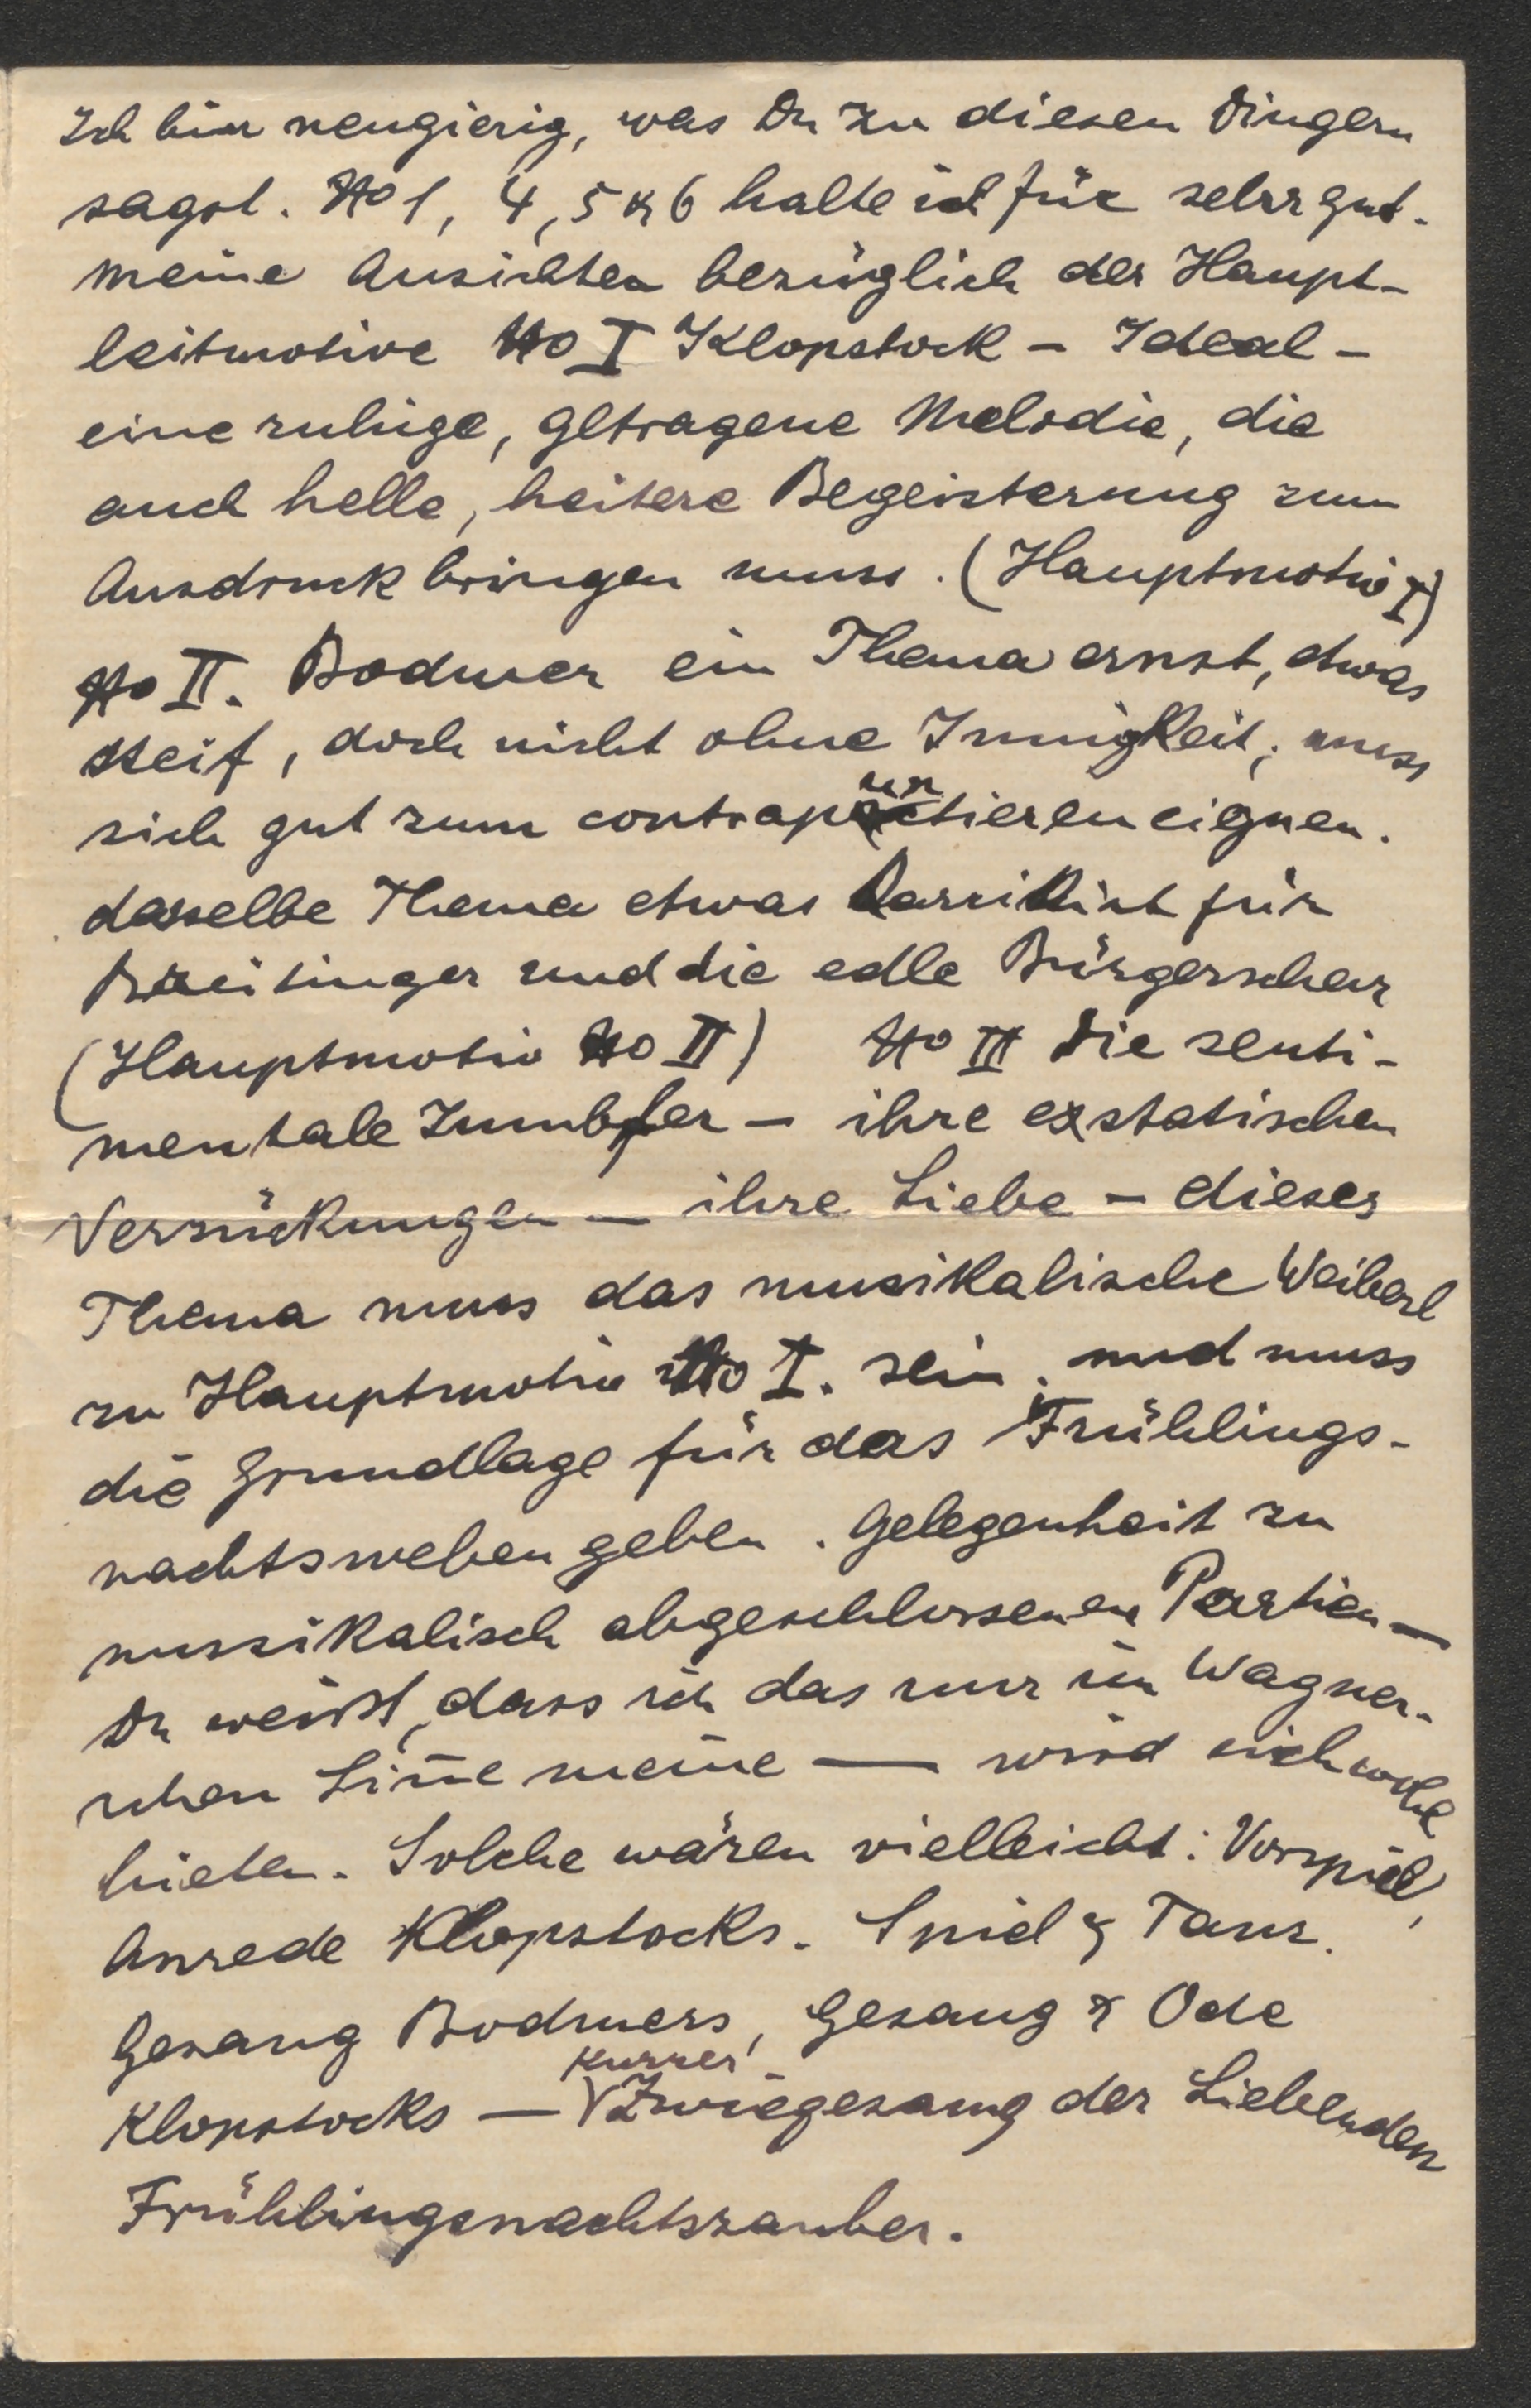 Ich bin neugierig, was Du zu diesen Dingern
sagst. No 1, 4, 5 & 6 halte ich für sehr gut.
Meine Ansichten bezüglich der Haupt-
leitmotive No I Klopstock – Ideal –
eine ruhige, getragene Melodie, die
auch helle, heitere Begeisterung zum
Ausdruck bringen muss. (Hauptmotiv I)
No II. Bodmer ein Thema ernst, etwas
steif, doch nicht ohne Innigkeit; muss
sich gut zum contrapunctieren eignen.
dasselbe Thema etwas karrikirt für
Breitinger und die edle Bürgerschar
(Hauptmotiv No II) No III die senti-
mentale Jumbfer – ihre exstatischen
Verzückungen – ihre Liebe – dieses
Thema muss das musikalische Weiberl
zu Hauptmotiv No I. sein. und muss
die Grundlage für das Frühlings-
nachtsweben geben. Gelegenheit zu
musikalisch abgeschlossenen Partien –
Du weisst, dass ich das nur im Wagner-
schen Sinne meine – wird sich wohl
bieten. Solche wären vielleicht: Vorspiel,
Anrede Klopstocks. Spiel & Tanz.
Gesang Bodmers, Gesang & Ode
Klopstocks – kurzer Zwiegesang der Liebenden
Frühlingsnachtszauber.